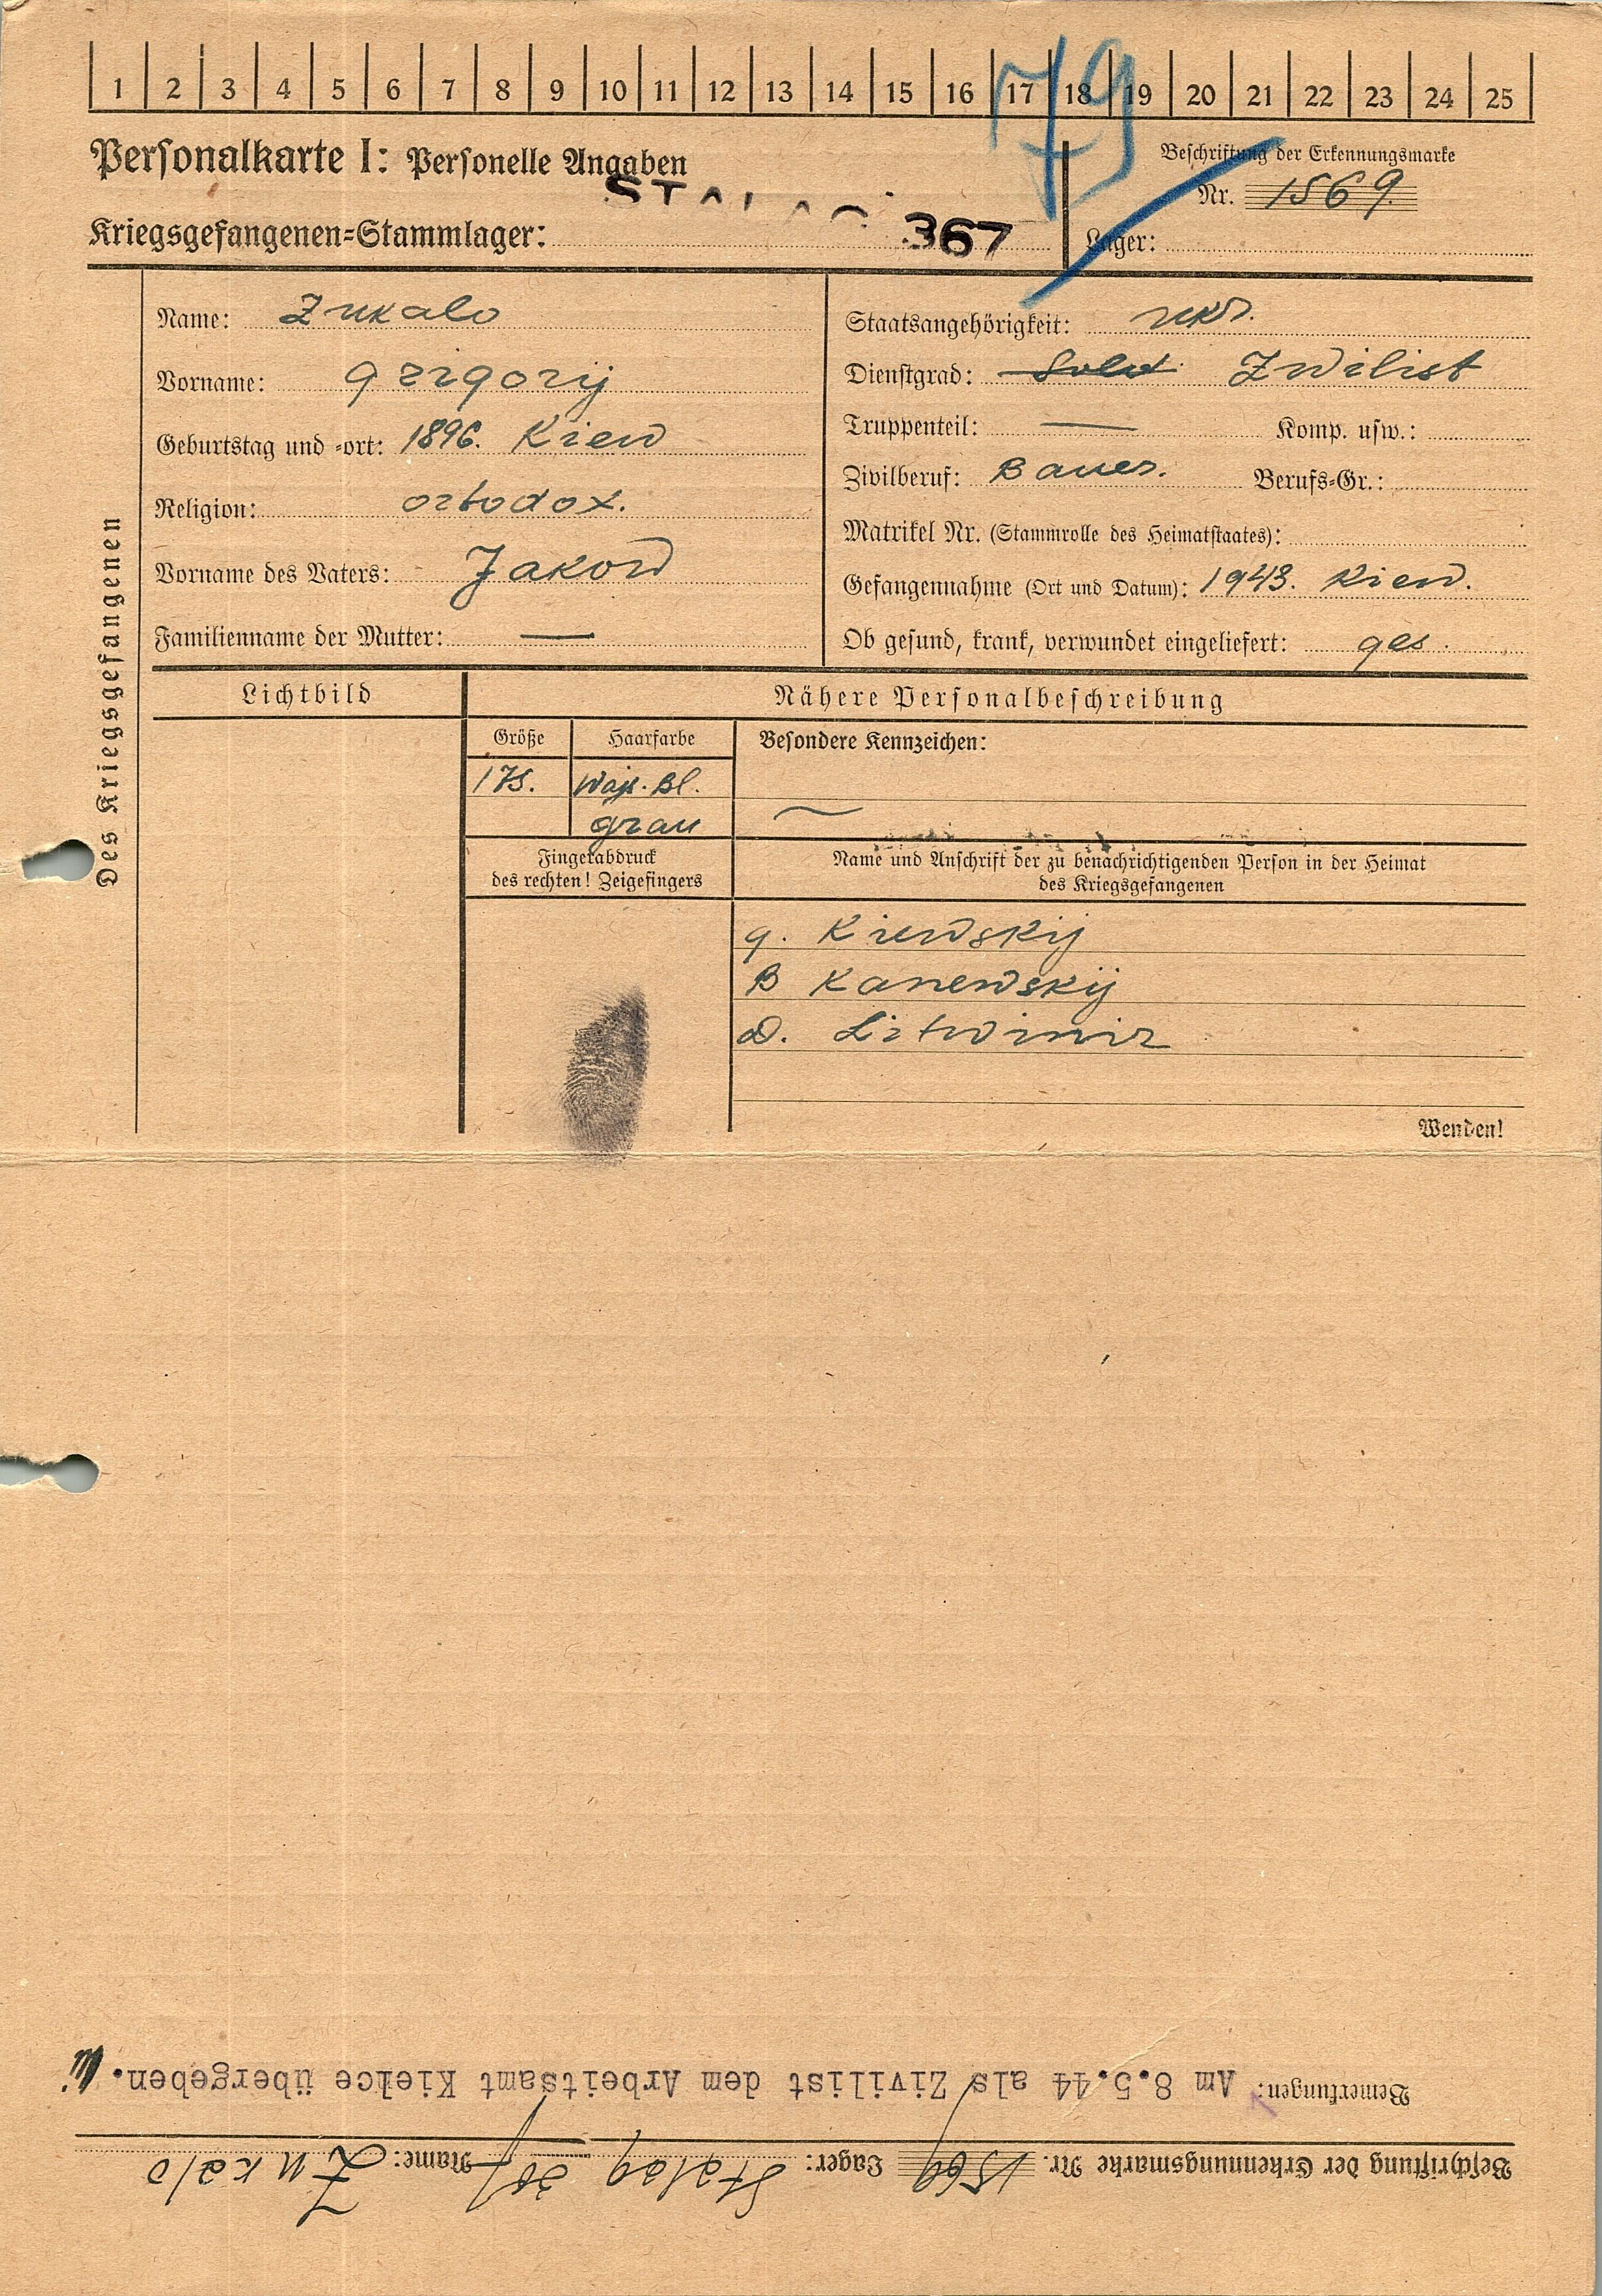 1 2 3 4 5 6 7 8 9 10 11 12 13 14 15 16 17 18 19 20 21 22 23 24 25
79
Personalkarte I: Personelle Angaben
Beschriftung der Erkennungsmarke
Nr. 1569.
STALAG
Kriegsgefangenen=Stammlager: 367
Lager:
Des Kriegsgefangenen
Name: Zukalo
Vorname: Grigorij
Geburtstag und =ort: 1896. Kiew
Religion: ortodox.
Vorname des Vaters: Jakow
Familienname der Mutter: —
Staatsangehörigkeit: ukr.
Dienstgrad: Sold. Zwilist
Truppenteil: — Komp. usw.:
Zivilberuf: Bauer. Berufs=Gr.:
Matrikel Nr. (Stammrolle des Heimatstaates):
Gefangennahme (Ort und Datum): 1943. Kiew.
Ob gesund, krank, verwundet eingeliefert: ges.
Lichtbild
Nähere Personalbeschreibung
Größe Haarfarbe Besondere Kennzeichen:
175. Bl.
grau
Fingerabdruck
des rechten! Zeigefingers
Name und Anschrift der zu benachrichtigenden Person in der Heimat
des Kriegsgefangenen
g. Kiewskij
B Kanewskij
D.
Wenden!
Beschriftung der Erkennungsmarke Nr. 1569 Lager: Stalag 367 Name: Zukalo
Bemerkungen: Am 8.5.44 als Zivilist dem Arbeitsamt Kielce übergeben.